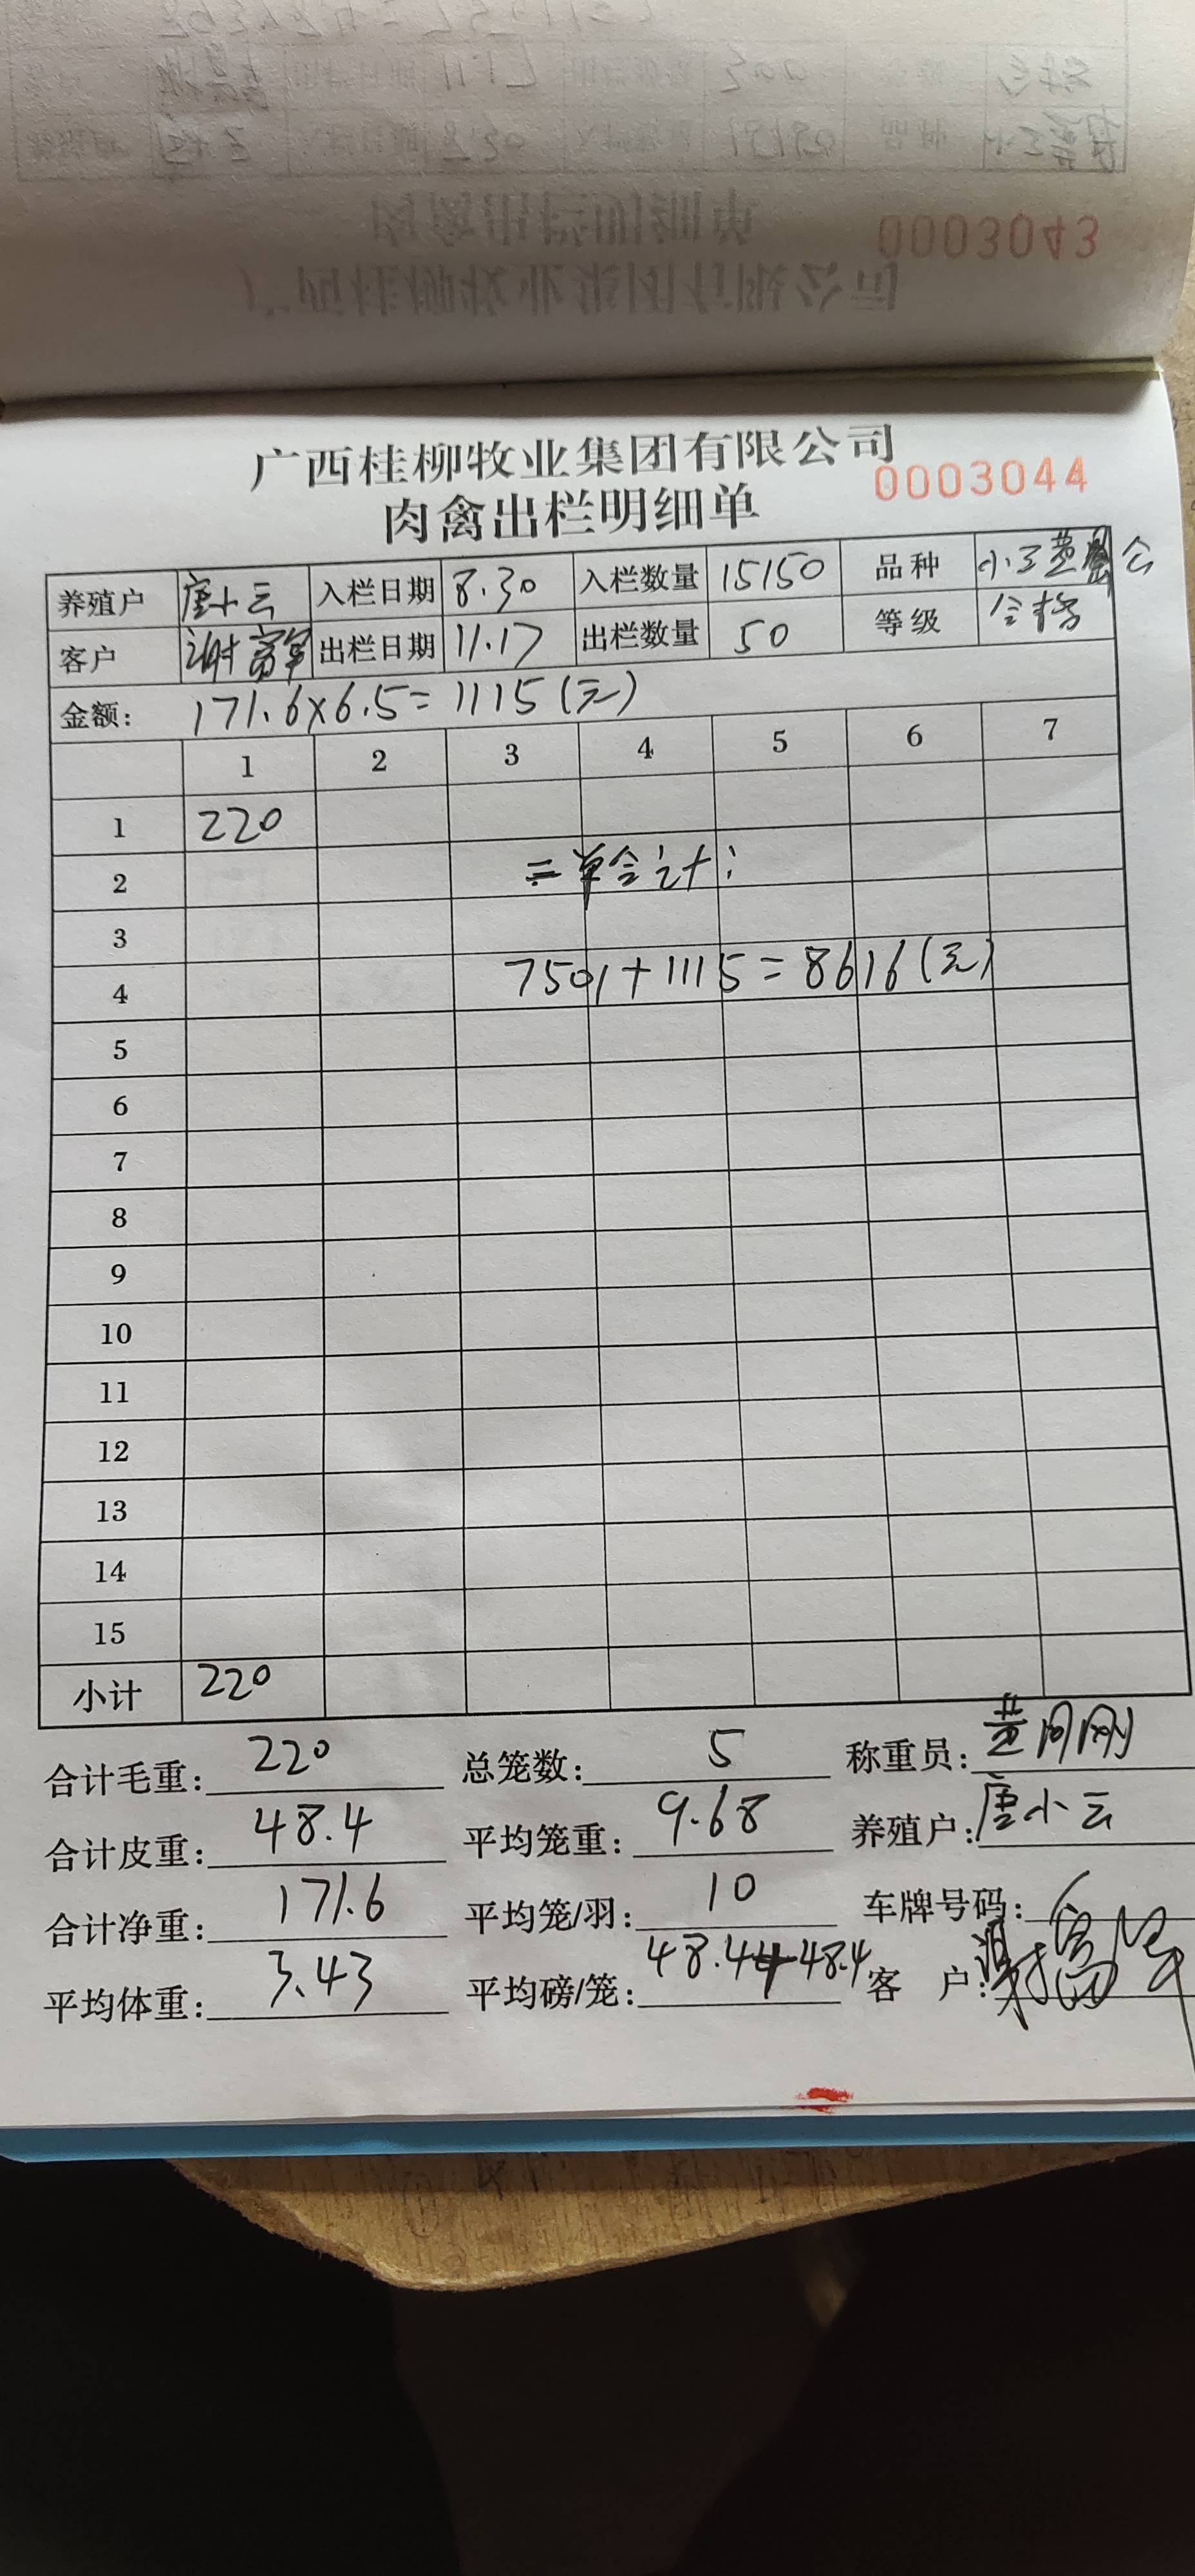 0003043
广西桂柳牧业集团有限公司
0003044
肉禽出栏明细单
养殖户 唐小云 入栏日期 8.30 入栏数量 15150 品种 公
客户 谢富军 出栏日期 11.17 出栏数量 50 等级 合格
金额: 171.6×6.5=1115(元)
1 2 3 4 5 6 7
1 220
2 二单合计:
3
4 7501+1115=8616(元)
5
6
7
8
9
10
11
12
13
14
15
小计 220
合计毛重: 220 总笼数: 5 称重员: 黄冈刚
合计皮重: 48.4 平均笼重: 9.68 养殖户: 唐小云
合计净重: 171.6 平均笼/羽: 10 车牌号码:
平均体重: 3.43 平均磅/笼: 48.4 客户: 谢富军